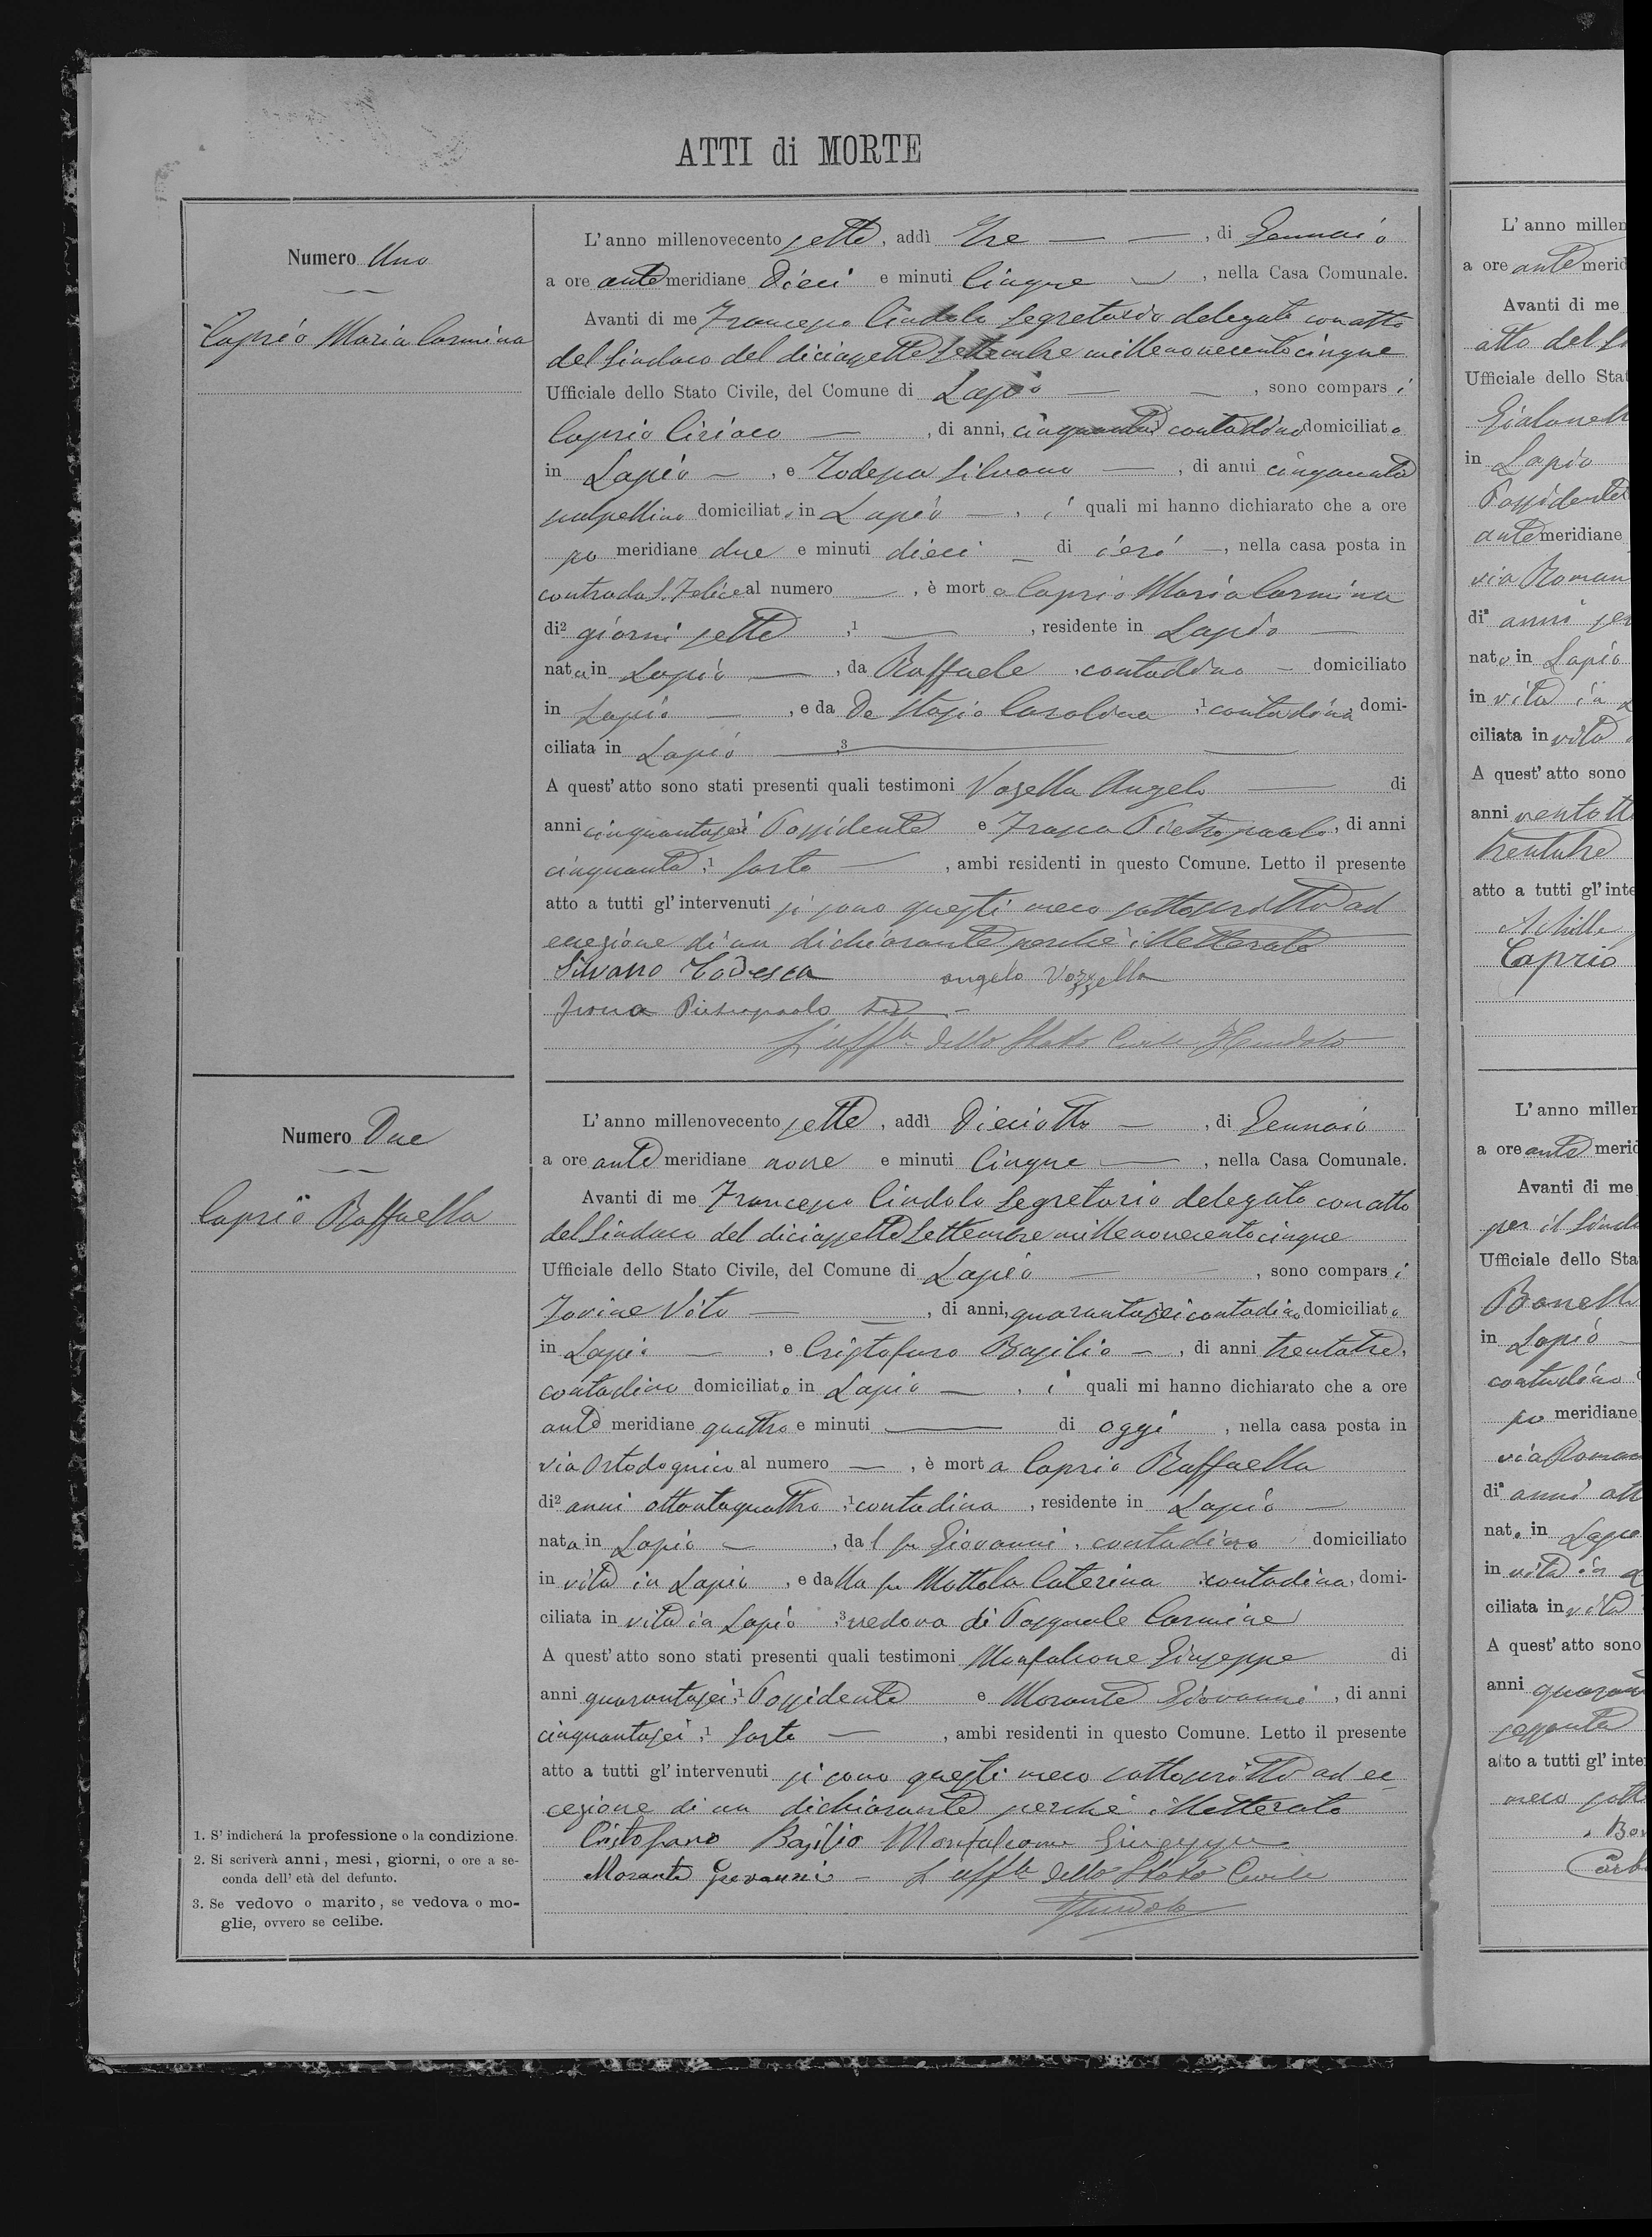 ATTI di MORTE
Numero Uno
Caprio Maria Carmina
L'anno millenovecento sette, addì Tre, di Gennaio
a ore antemeridiane Dieci e minuti Cinque, nella Casa Comunale.
Avanti di me Francesco Cindolo Segretario delegato con atto
del Sindaco del diciassette Settembre millenovecentocinque
Ufficiale dello Stato Civile, del Comune di Lapio, sono comparsi
Caprio Ciriaco, di anni, cinquanta contadino domiciliato
in Lapio, e Todesca Silvano, di anni cinquanta
scalpellino domiciliato in Lapio, i quali mi hanno dichiarato che a ore
po meridiane due e minuti dieci di ieri, nella casa posta in
contrada S. Felice al numero, è morta Caprio Maria Carmina
di² giorni sette,¹, residente in Lapio
nata in Lapio, da Raffaele, contadino domiciliato
in Lapio, e da De Stasio Carolina,¹ contadina domi-
ciliata in Lapio ,³
A quest'atto sono stati presenti quali testimoni Vozella Angelo di
anni cinquantasei Possidente e Pietropaolo, di anni
cinquanta,¹ Sarto, ambi residenti in questo Comune. Letto il presente
atto a tutti gl'intervenuti si sono questi meco sottoscritto ad
eccezione di un dichiarante perchè illetterato
Silvano Todesca angelo Vozzella
Pietropaolo
L'uffle dello Stato Civile FCindolo
Numero Due
Caprio Raffaella
L'anno millenovecento sette, addì Dieciotto, di Gennaio
a ore antemeridiane nove e minuti Cinque, nella Casa Comunale.
Avanti di me Francesco Cindolo Segretario delegato con atto
del Sindaco del diciassette Settembre millenovecentocinque
Ufficiale dello Stato Civile, del Comune di Lapio, sono comparsi
Iovine Vito, di anni, quarantasei contadino domiciliato
in Lapio, e Cristofaro Basilio, di anni trentatre,
contadino domiciliato in Lapio, i quali mi hanno dichiarato che a ore
ante meridiane quattro e minuti di oggi, nella casa posta in
via Ortodognico al numero, è morta Caprio Raffaella
di² anni ottantaquattro,¹ contadina, residente in Lapio
nata in Lapio, dal fu Giovanni, contadino domiciliato
in vita in Lapio, e dalla fu Mottola Caterina contadina, domi-
ciliata in vita in Lapio ,³ vedova di Pasquale Carmine
A quest'atto sono stati presenti quali testimoni Monfalcone Giuseppe di
anni quarantasei,¹ Possidente e Morante Giovanni, di anni
cinquantasei,¹ Sarto, ambi residenti in questo Comune. Letto il presente
atto a tutti gl'intervenuti si sono questi meco sottoscritto ad ec
cezione di un dichiarante perchè illetterato
Cristofano Basilio Monfalcone Giuseppe
Morante Giovanni L'uffle dello Stato Civile
FCindolo
1. S'indicherá la professione o la condizione.
2. Si scriverà anni, mesi, giorni, o ore a se-
conda dell'età del defunto.
3. Se vedovo o marito, se vedova o mo-
glie, ovvero se celibe.
L'anno millen
a ore ante merid
Avanti di me
atto del S
Ufficiale dello Stat
in Lapio
Possidente
antemeridiane
via Roman
di² anni
nato in Lapio
in vita in
ciliata in vita
A quest'atto sono
anni ventott
trentatre
atto a tutti gl'inte
Achille
Caprio
L'anno millen
a ore ante merid
Avanti di me
per il Sinda
Ufficiale dello Sta
Bonell
in Lapio
contadino
po meridiane
via Roman
di² anni ott
nato in Lapio
in vita in
ciliata in vita
A quest'atto sono
anni quaran
sessanta
atto a tutti gl'inte
meco sott